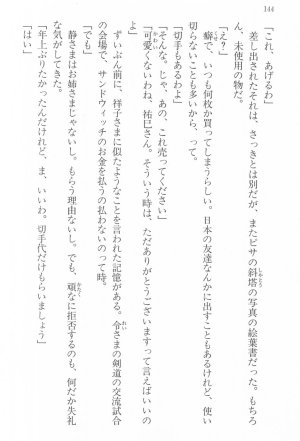 144
「これ、あげるわ」
差し出されたそれは、さっきとは別だが、またピサの斜塔の写真の絵葉書だった。もちろ
ん、未使用の物だ。
「え?」
癖で、いつも何枚か買ってしまうらしい。日本の友達なんかに出すこともあるけれど、使い
切らないことも多いから、って。
「切手もあるわよ」
「そんな。じゃ、あの、これ売ってください」
「可愛くないわね、祐巳さん。そういう時は、ただありがとうございますって言えばいいの
よ」
ずいぶん前に、祥子さまに似たようなことを言われた記憶がある。令さまの剣道の交流試合
の会場で、サンドウィッチのお金を払う払わないのって時。
「でも」
静さまはお姉さまじゃないし。もらう理由ないし。でも、頑なに拒否するのも、何だか失礼
な気がしてきた。
「年上ぶりたかったんだけれど、ま、いいわ。切手代だけもらいましょう」
「はい」